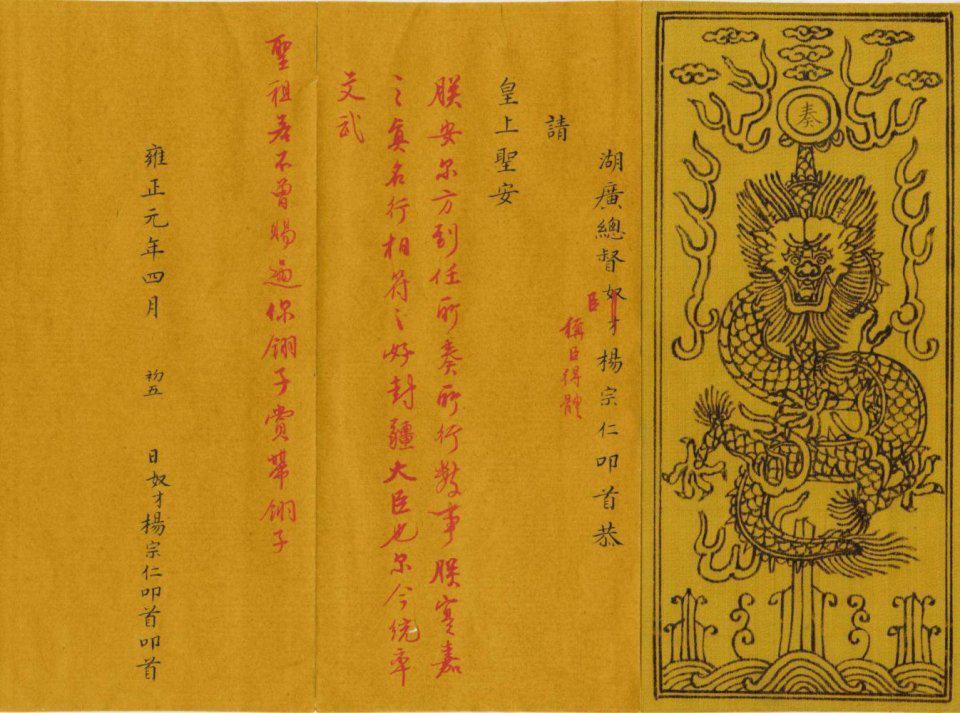 奏
湖廣總督奴才楊宗仁叩首恭
臣
稱臣得體
請
皇上聖安
朕安尔方到任所奏所行數事朕實嘉
之真名行相符之好封疆大臣也尔今統率
文武
聖祖若不曾賜過你翎子賞帶翎子
雍正元年四月 初五 日奴才楊宗仁叩首叩首